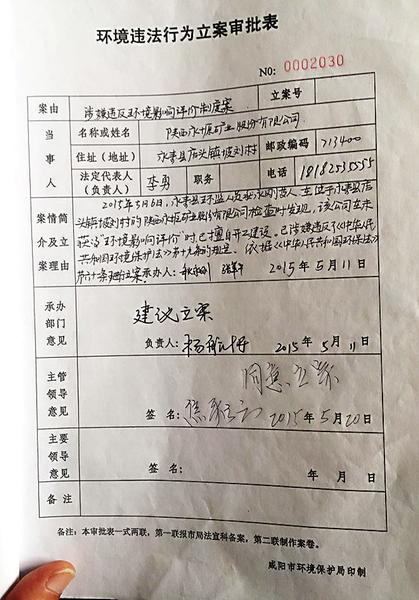 环境违法行为立案审批表
NO: 0002030
案由 涉嫌违反环境影响评价制度案 立案号
当事人 名称或姓名 陕西永坂矿业股份有限公司
住址（地址） 永寿县店头镇坡刘村 邮政编码 713400
法定代表人（负责人） 李勇 职务 电话 18182535555
案情简介及立案理由
2015年5月6日，永寿县环监人员
头镇坡刘村的陕西永坂矿业股份有限公司检查时发现，该公司在未
获得“环境影响评价”时，已擅自开工建设。已涉嫌违反了《中华人民
共和国环境保护法》第十九条的规定。依据《中华人民共和国环保法》
第六十一条拟立案 承办人： 2015年5月11日
承办部门意见 建议立案
负责人： 2015年5月11
主管领导意见 同意立案
签名： 2015年5月20日
主要领导意见
签名： 年 月 日
备注
备注：本审批表一式两联，第一联报市局法宣科备案，第二联制作案卷。
咸阳市环境保护局印制